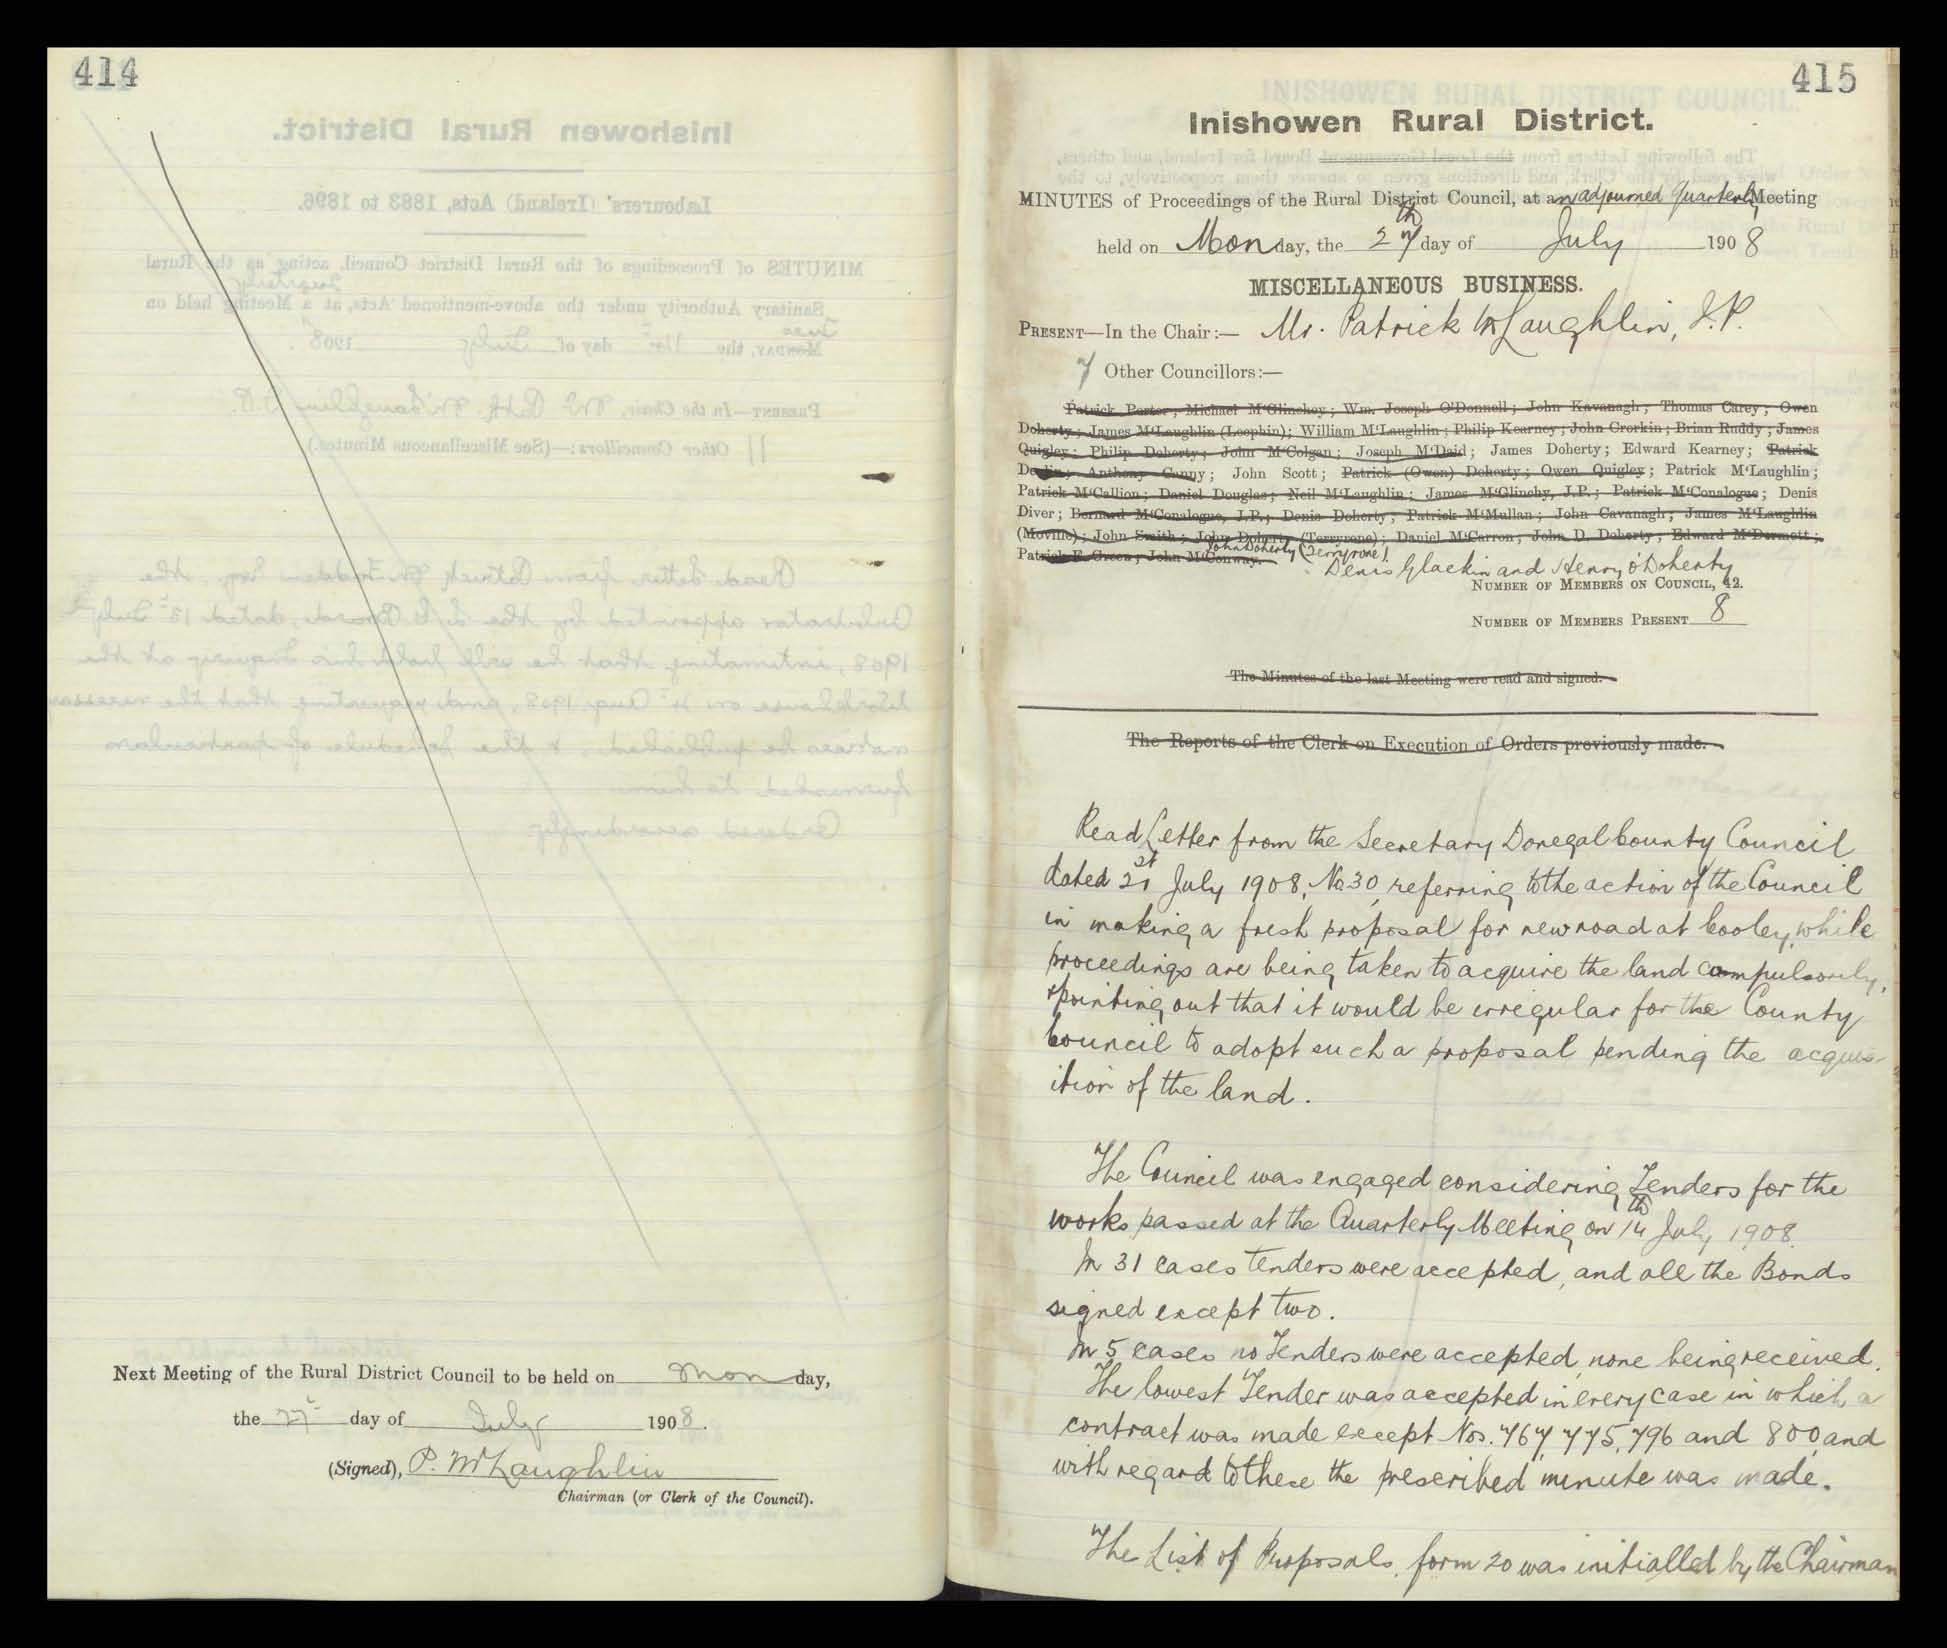 414
Next Meeting of the Rural District Council to be held on Monday,
the 27th day of July 1908.
(Signed), P. McLaughlin
Chairman (or Clerk of the Council).
415
Inishowen Rural District.
MINUTES of Proceedings of the Rural District Council, at an adjourned Quarterly Meeting
held on Monday, the 27th day of July 1908
MISCELLANEOUS BUSINESS.
PRESENT—In the Chair:— Mr. Patrick McLaughlin, J.P.
7 Other Councillors:—
Patrick Porter; Michael M'Glinchey; Wm. Joseph O'Donnell; John Kavanagh; Thomas Carey; Owen
Doherty; James M'Laughlin (Leophin); William M'Laughlin; Philip Kearney; John Crorkin; Brian Ruddy; James
Quigley; Philip Doherty; John M'Colgan; Joseph M'Daid; James Doherty; Edward Kearney; Patrick
Devlin; Anthony Canny; John Scott; Patrick (Owen) Doherty; Owen Quigley; Patrick M'Laughlin;
Patrick M'Callion; Daniel Douglas; Neil M'Laughlin; James M'Glinchy, J.P.; Patrick M'Conalogue; Denis
Diver; Bernard M'Conalogue, J.P.; Denis Doherty; Patrick M'Mullan; John Cavanagh; James M'Laughlin
(Moville); John Smith; John Doherty (Terryrone); Daniel M'Carron; John D. Doherty; Edward M'Dermott;
Patrick E. Green; John M'Conway. John Doherty (Terryrone)
Denis Glackin and Henry O'Doherty
NUMBER OF MEMBERS ON COUNCIL, 42.
NUMBER OF MEMBERS PRESENT 8
The Minutes of the last Meeting were read and signed.
The Reports of the Clerk on Execution of Orders previously made.
Read Letter from the Secretary Donegal County Council
dated 21st July 1908, No 30, referring to the action of the Council
in making a fresh proposal for new road at Cooley, while
proceedings are being taken to acquire the land compulsorily,
& pointing out that it would be irregular for the County
Council to adopt such a proposal pending the acquis-
ition of the land.
The Council was engaged considering Tenders for the
works passed at the Quarterly Meeting on 14th July 1908.
In 31 cases Tenders were accepted, and all the Bonds
signed except two.
In 5 cases no Tenders were accepted, none being received.
The lowest Tender was accepted in every case in which a
contract was made except Nos. 767, 775, 796 and 800, and
with regard to these the prescribed minute was made.
The List of Proposals, form 20 was initialled by the Chairman